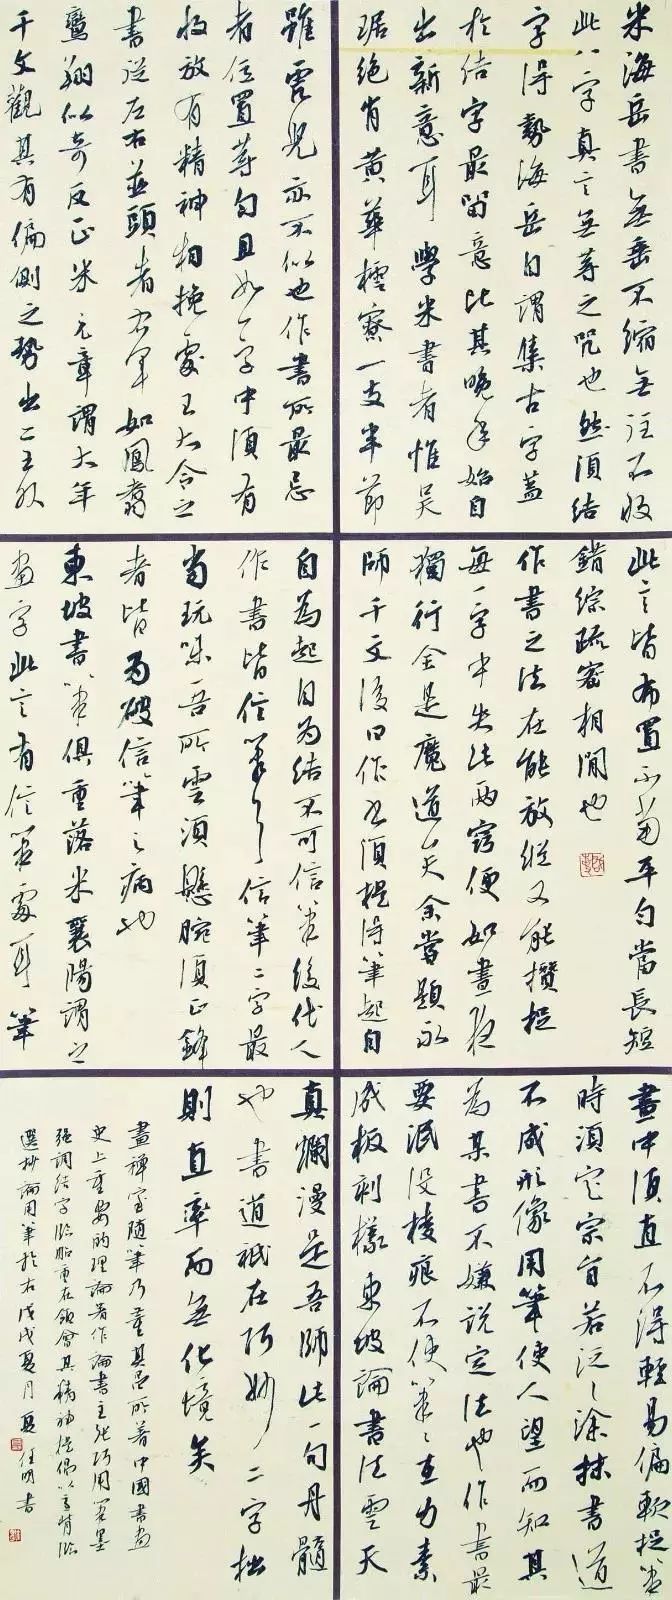 米海岳書無垂不縮無往不收
此八字真言無等之咒也然須結
字得勢海岳自謂集古字蓋
於結字最留意比其晚年始自
出新意耳學米書者惟吳
琚絕肖黃華樗寮一支半節
雖虎兒亦不似也作書所最忌
者位置等勻且如一字中須有
收放有精神相挽處王大令之
書從左右並頭者右軍如鳳翥
鸞翔似奇反正米元章謂大年
千文觀其有偏側之勢出二王外
此言皆布置不當平勻當長短
錯綜疏密相間也
作書之法在能放縱又能攢捉
每一字中失此兩竅便如晝夜
獨行全是魔道矣余嘗題永
師千文後曰作書須提得筆起自
自為起自為結不可信筆後代人
作書皆信筆耳信筆二字最
當玩味吾所雲須懸腕須正鋒
者皆為破信筆之病也
東坡書筆俱重落米襄陽謂之
畫字此言有信筆處耳筆
畫中須直不得輕易偏軟捉筆
時須定宗旨若泛泛塗抹書道
不成形像用筆使人望而知其
為某書不嫌說定法也作書最
要泯沒棱痕不使筆筆在素
成板刻樣東坡論書法雲天
真爛漫是吾師此一句丹髓
也書道祗在巧妙二字拙
則直率而無化境矣
畫禪室隨筆乃董其昌所著中國書畫
史上重要的理論著作論書主張巧用筆墨
強調結字臨帖重在領會其精神提倡以意背臨
選抄論用筆於右戊戌夏月夏任明書